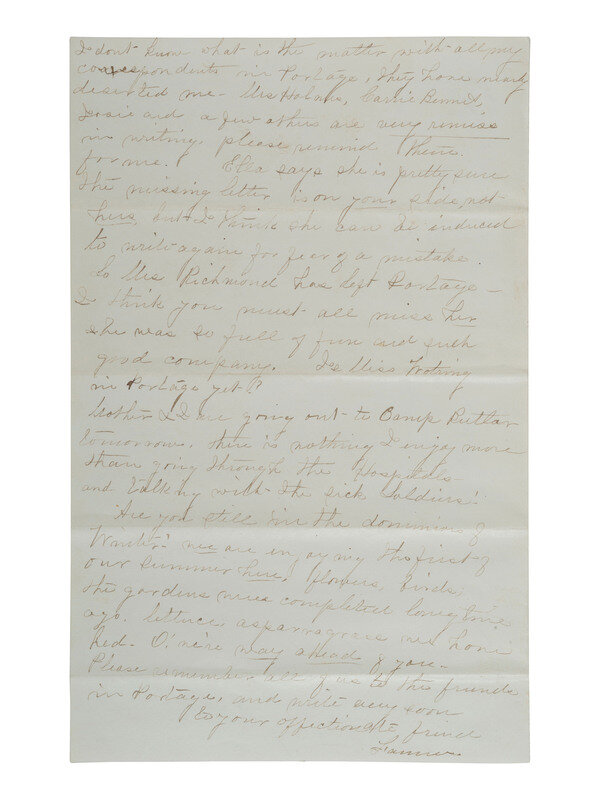 I dont know what is the matter with all my
correspondents in Portage, they have nearly
deserted me - Mrs Holmes, Carrie Bennet,
Josie and a few others are very remiss
in writing, please remind them
for me. Ella says she is pretty sure
the missing letter is on your side not
hers, but I think she can be induced
to write again for fear of a mistake.
So Mrs Richmond has left Portage -
I think you must all miss her
she was so full of fun and such
good company. Is Miss
in Portage yet?
Mother & I are going out to Camp Butlar
tomorrow, there is nothing I enjoy more
than going through the Hospitals
and talking with the sick Soldiers!
Are you still in the dominion of
Winter? we are enjoying the first of
our summer here, flowers, birds,
the gardens were completed long time
ago. lettuce, asparragrass we have
had. O! we're way ahead of you.
Please remember all of us to the friends
in Portage, and write very soon
to your affectionate friend